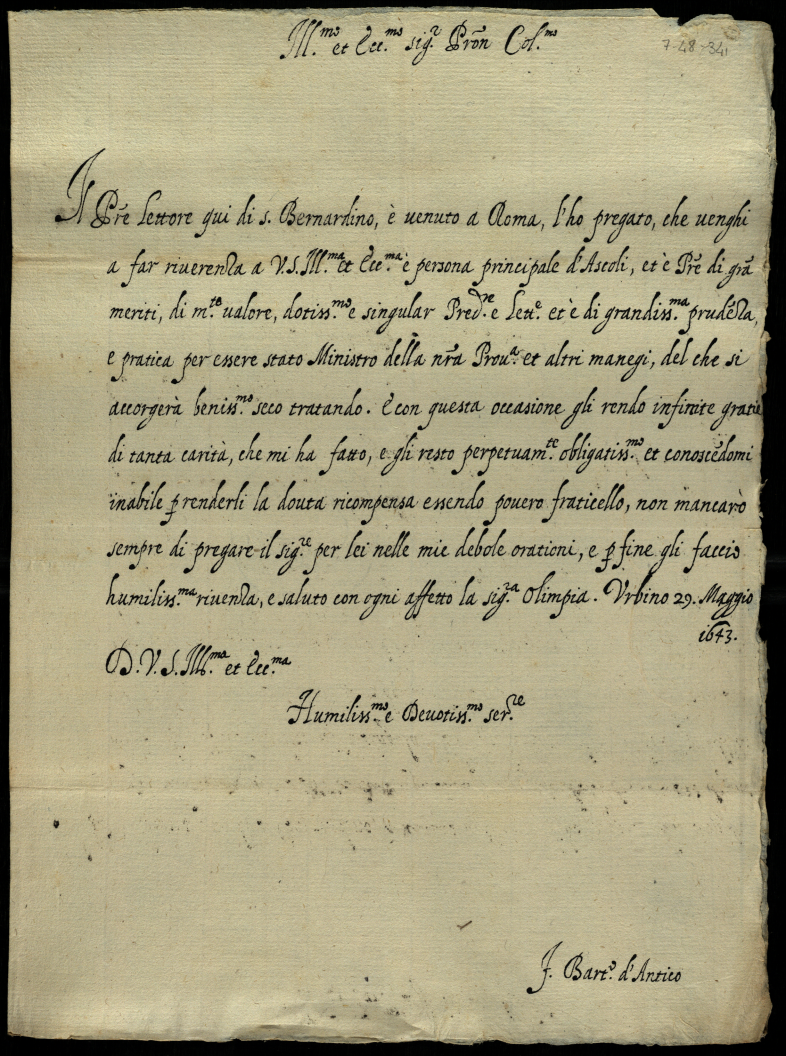 Ill.mo et Ecc.mo sig.r Prõn Col.mo
7-48-34
Il Prẽ Lettore qui di S. Bernardino, è venuto a Roma, l'ho pregato, che venghi
a far riuerenza a V.S. Ill.ma et Ecc.ma è persona principale d'Ascoli, et è Prẽ di grã
meriti, di m.to ualore, dotiss.mo e singular Pred.re e Lett.e et è di grandiss.ma prudẽza,
e pratica per essere stato Ministro della nrã Prou.a et altri manegi, del che si
accorgerà beniss.mo seco tratando. E con questa occasione gli rendo infinite gratie
di tanta carità, che mi ha fatto, e gli resto perpetuam.te obligatiss.mo et conoscẽdomi
inabile p renderli la douta ricompensa essendo pouero fraticello, non mancarò
sempre di pregare il sig.re per lei nelle mie debole orationi, e p fine gli faccio
humiliss.ma riuenza, e saluto con ogni affetto la sig.ra Olimpia. Vrbino 29. Maggio
1643.
D. V. S. Ill.ma et Ecc.ma
Humiliss.mo e Deuotiss.mo ser.re
F. Bart.o d'Antico